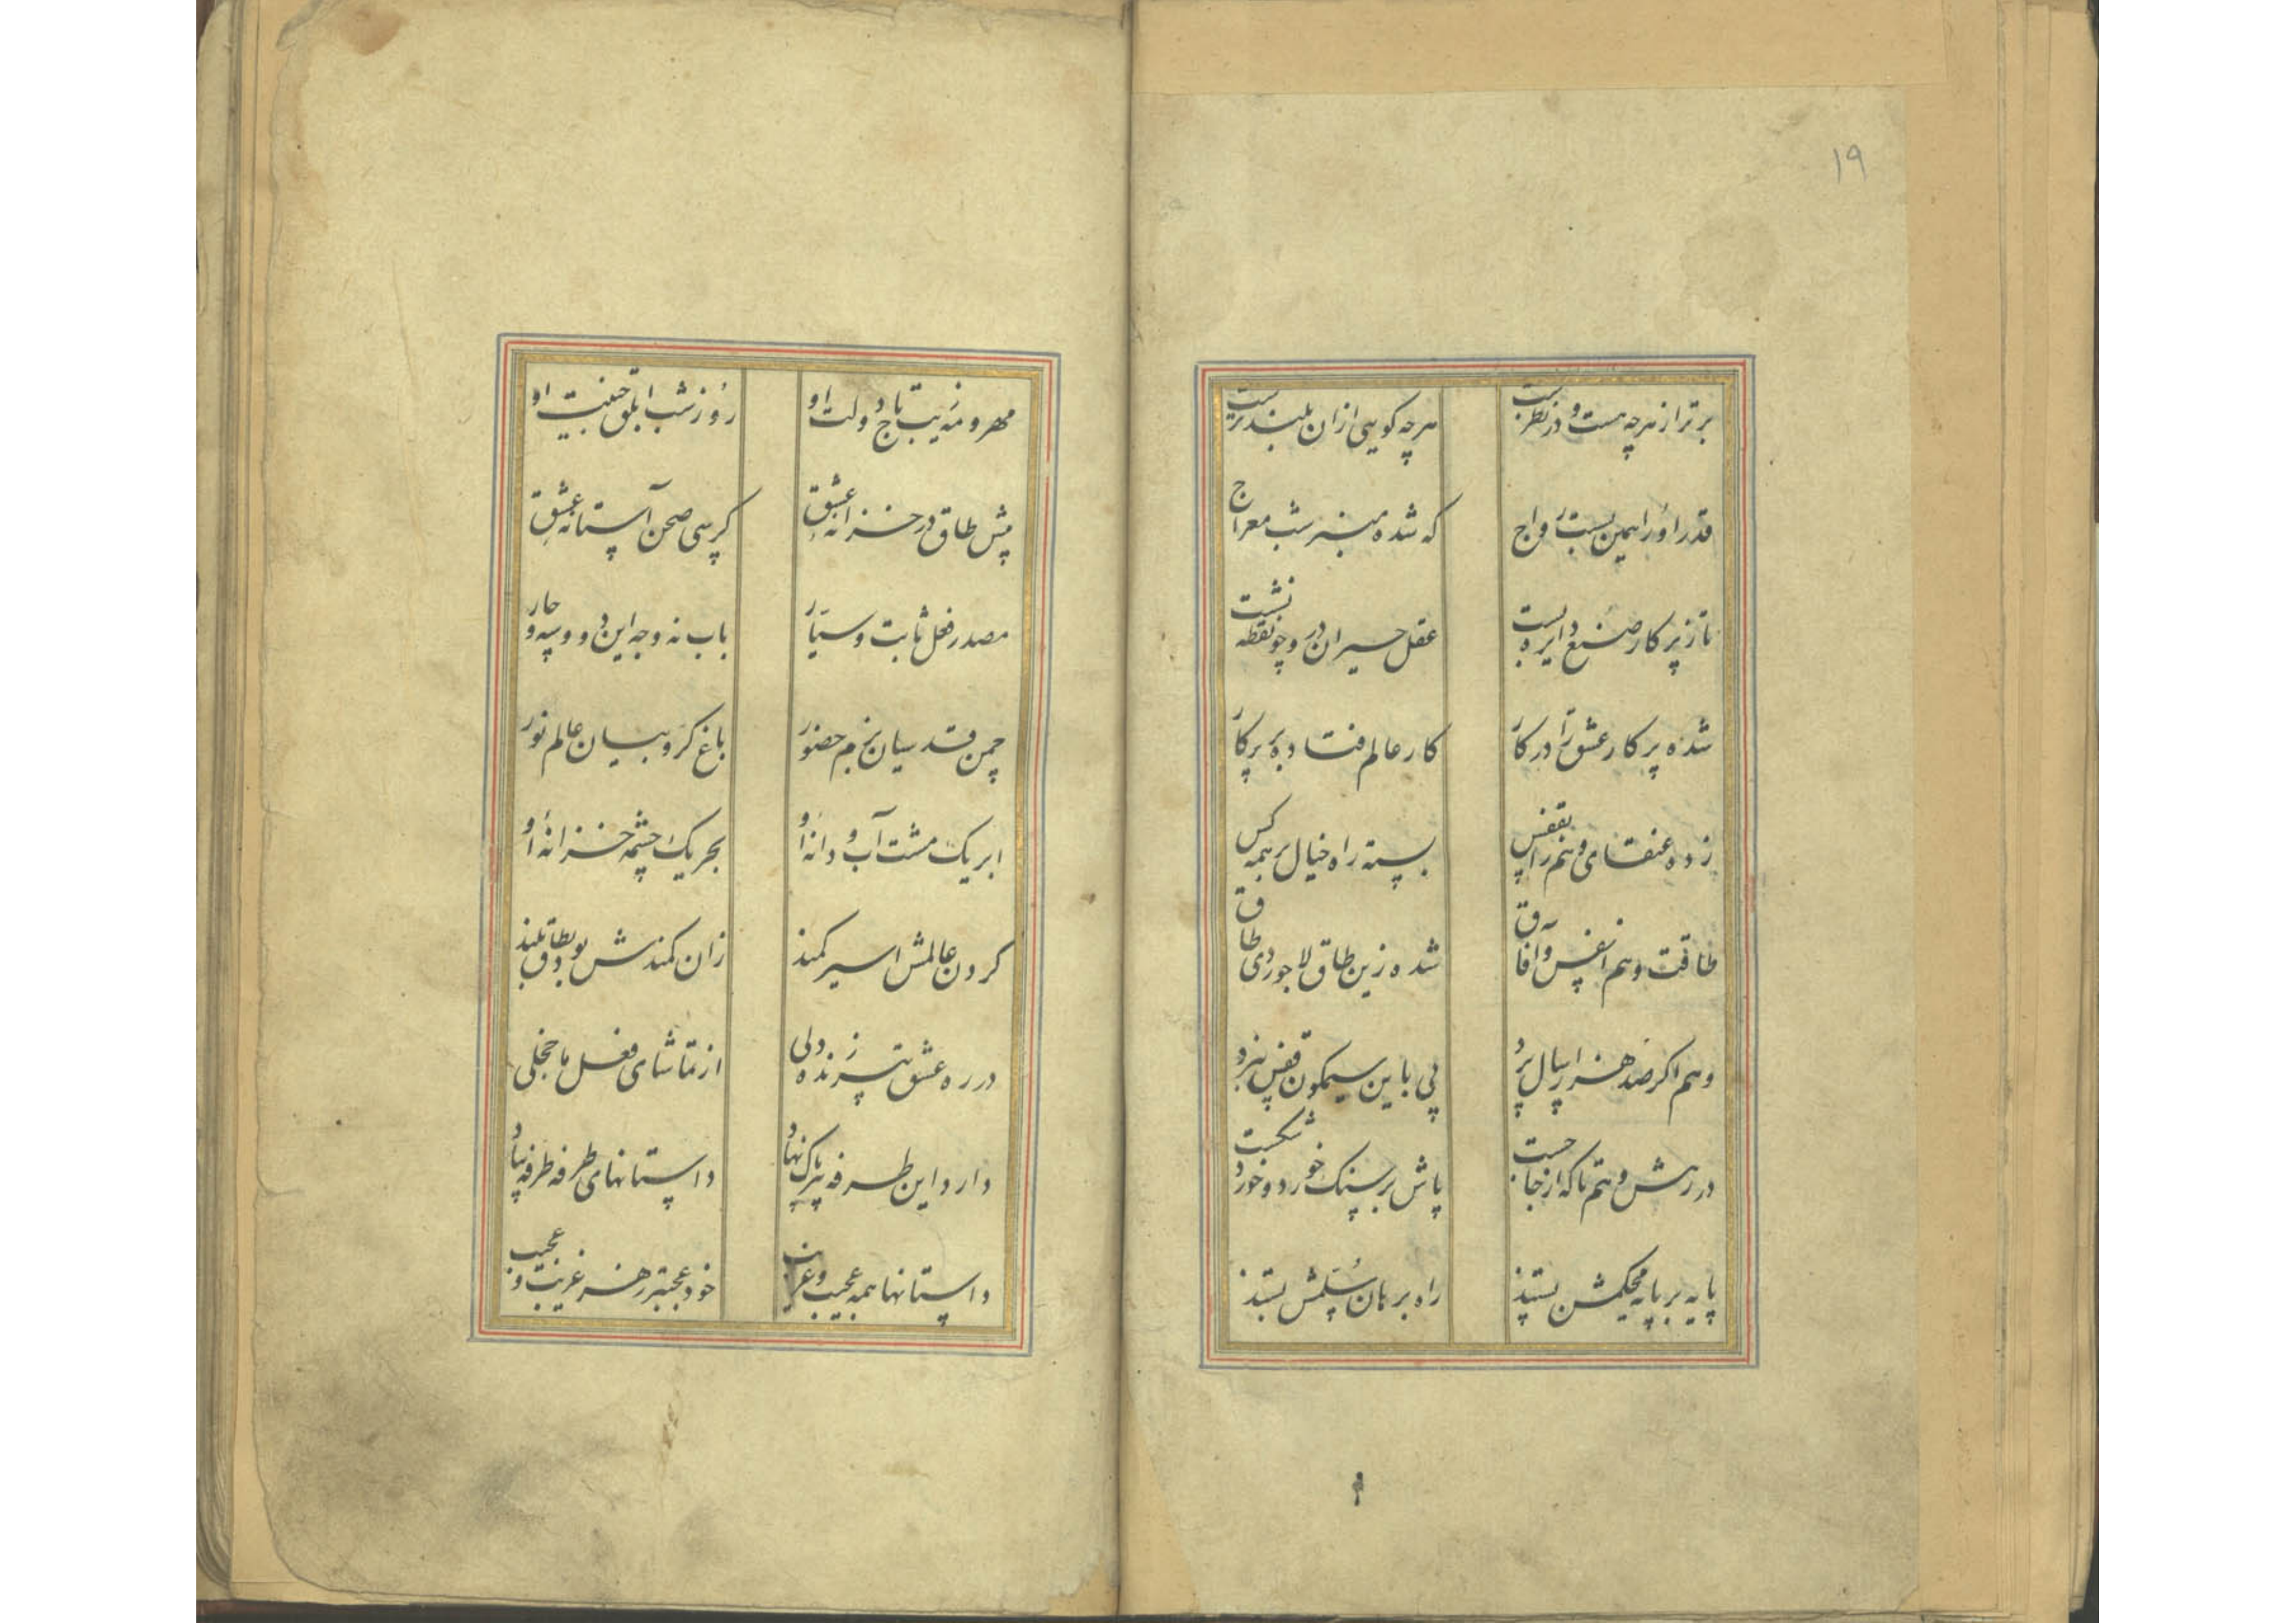 ۱۹
برتر از هرچه هست و در نظرست هرچه کویی ازان بلندترست
قدر او را همین بست رواج که شده منبر شب معراج
تا ز پرکار صنع دایره بست عقل حیران درو چو نقطه نشست
شده پرکار عشق را در کار کار عالم فتاده بر پرکار
زده عنقای وهم را بقفس بسته راه خیال بر همه کس
طاقت وهم انفس و افاق شده زین طاق لاجوردی طاق
وهم اکر صد هزار سال پرد پی باین سیمکون قفس نبرد
در رهش وهم تا که از جا جست پاش بر سنک خورد و خورد شکست
پایه بر پایه محکمش بستند راه بر بان سلمش بستند
مهر و مه زیب تاج دولت او روز شب ابلق جنیبت او
پیش طاق در خزانه عشق کرسی صحن آستانه عشق
مصدر فعل ثابت و سیار باب نه وجه این دو و سه و چار
چمن قدسیان بزم حضور باغ کروبیان عالم نور
ابر یک مشت آب و دانه او بحر یک چشمه خزانه او
کردن عالمش اسیر کمند زان کمندش بود بطاق بلند
در ره عشق پیر زنده دلی از تماشای فعل ما خجلی
دارد این طرفه پیرک نهاد داستانهای طرفه طرفه بیاد
داستانها همه عجیب و غریب خود عجبتر ز هر غریب و عجیب